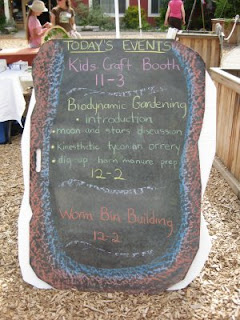 TODAY'S EVENTS
Kids Craft Booth
11-3
Biodynamic Gardening
• introduction
• moon and stars discussion
• Kinesthetic tyconian orrery
• dig up horn manure prep
12-2
Worm Bin Building
12-2